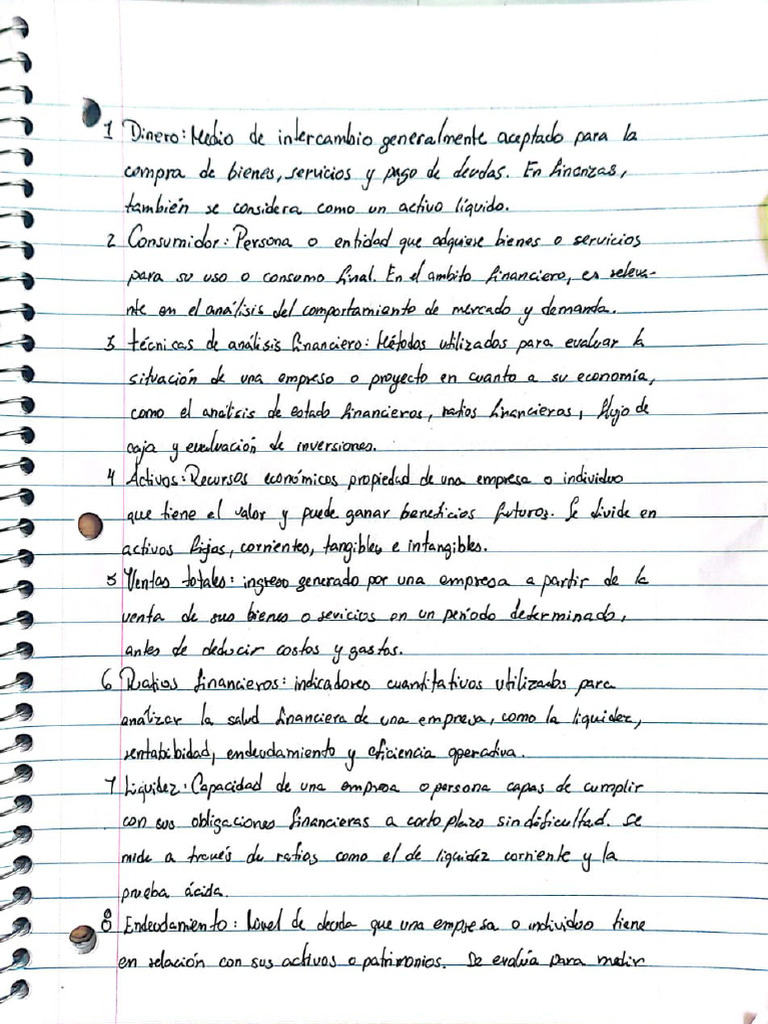 1 Dinero: Medio de intercambio generalmente aceptado para la
compra de bienes, servicios y pago de deudas. En finanzas,
también se considera como un activo líquido.
2 Consumidor: Persona o entidad que adquiere bienes o servicios
para su uso o consumo final. En el ambito financiero, es releva-
nte en el análisis del comportamiento de mercado y demanda.
3 técnicas de análisis financiero: Métodos utilizados para evaluar la
situación de una empresa o proyecto en cuanto a su economía,
como el analisis de estado financieros, ratios financieros, flujo de
caja y evaluación de inversiones.
4 Activos: Recursos económicos propiedad de una empresa o individuo
que tiene el valor y puede ganar beneficios futuros. Se divide en
activos fijos, corrientes, tangibles e intangibles.
5 Ventas totales: ingreso generado por una empresa a partir de la
venta de sus bienes o sevicios en un período determinado,
antes de deducir costos y gastos.
6 Ratios financieros: indicadores cuantitativos utilizados para
analizar la salud financiera de una empresa, como la liquidez,
rentabilidad, endeudamiento y eficiencia operativa.
7 Liquidez: Capacidad de una empresa o persona capas de cumplir
con sus obligaciones financieras a corto plazo sin dificultad. se
mide a través de ratios como el de liquidez corriente y la
prueba ácida.
8 Endeudamiento: Nivel de deuda que una empresa o individuo tiene
en relación con sus activos o patrimonios. Se evalúa para medir